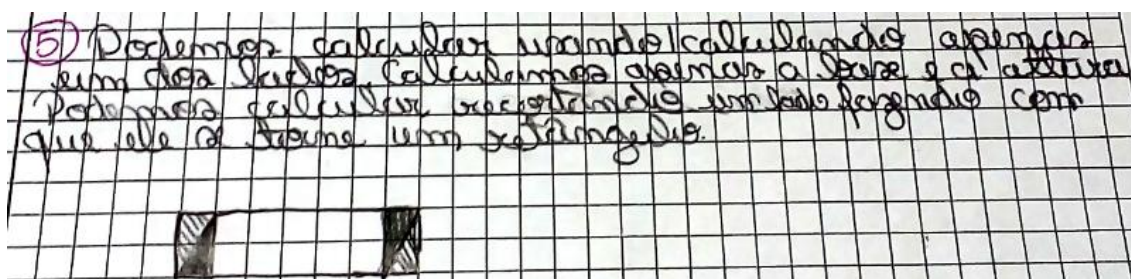 5 Podemos calcular usando calculando apenas
um dos lados calculamos apenas a base e a altura
Podemos calcular recortando um lado fazendo com
que ele se torne um retângulo.